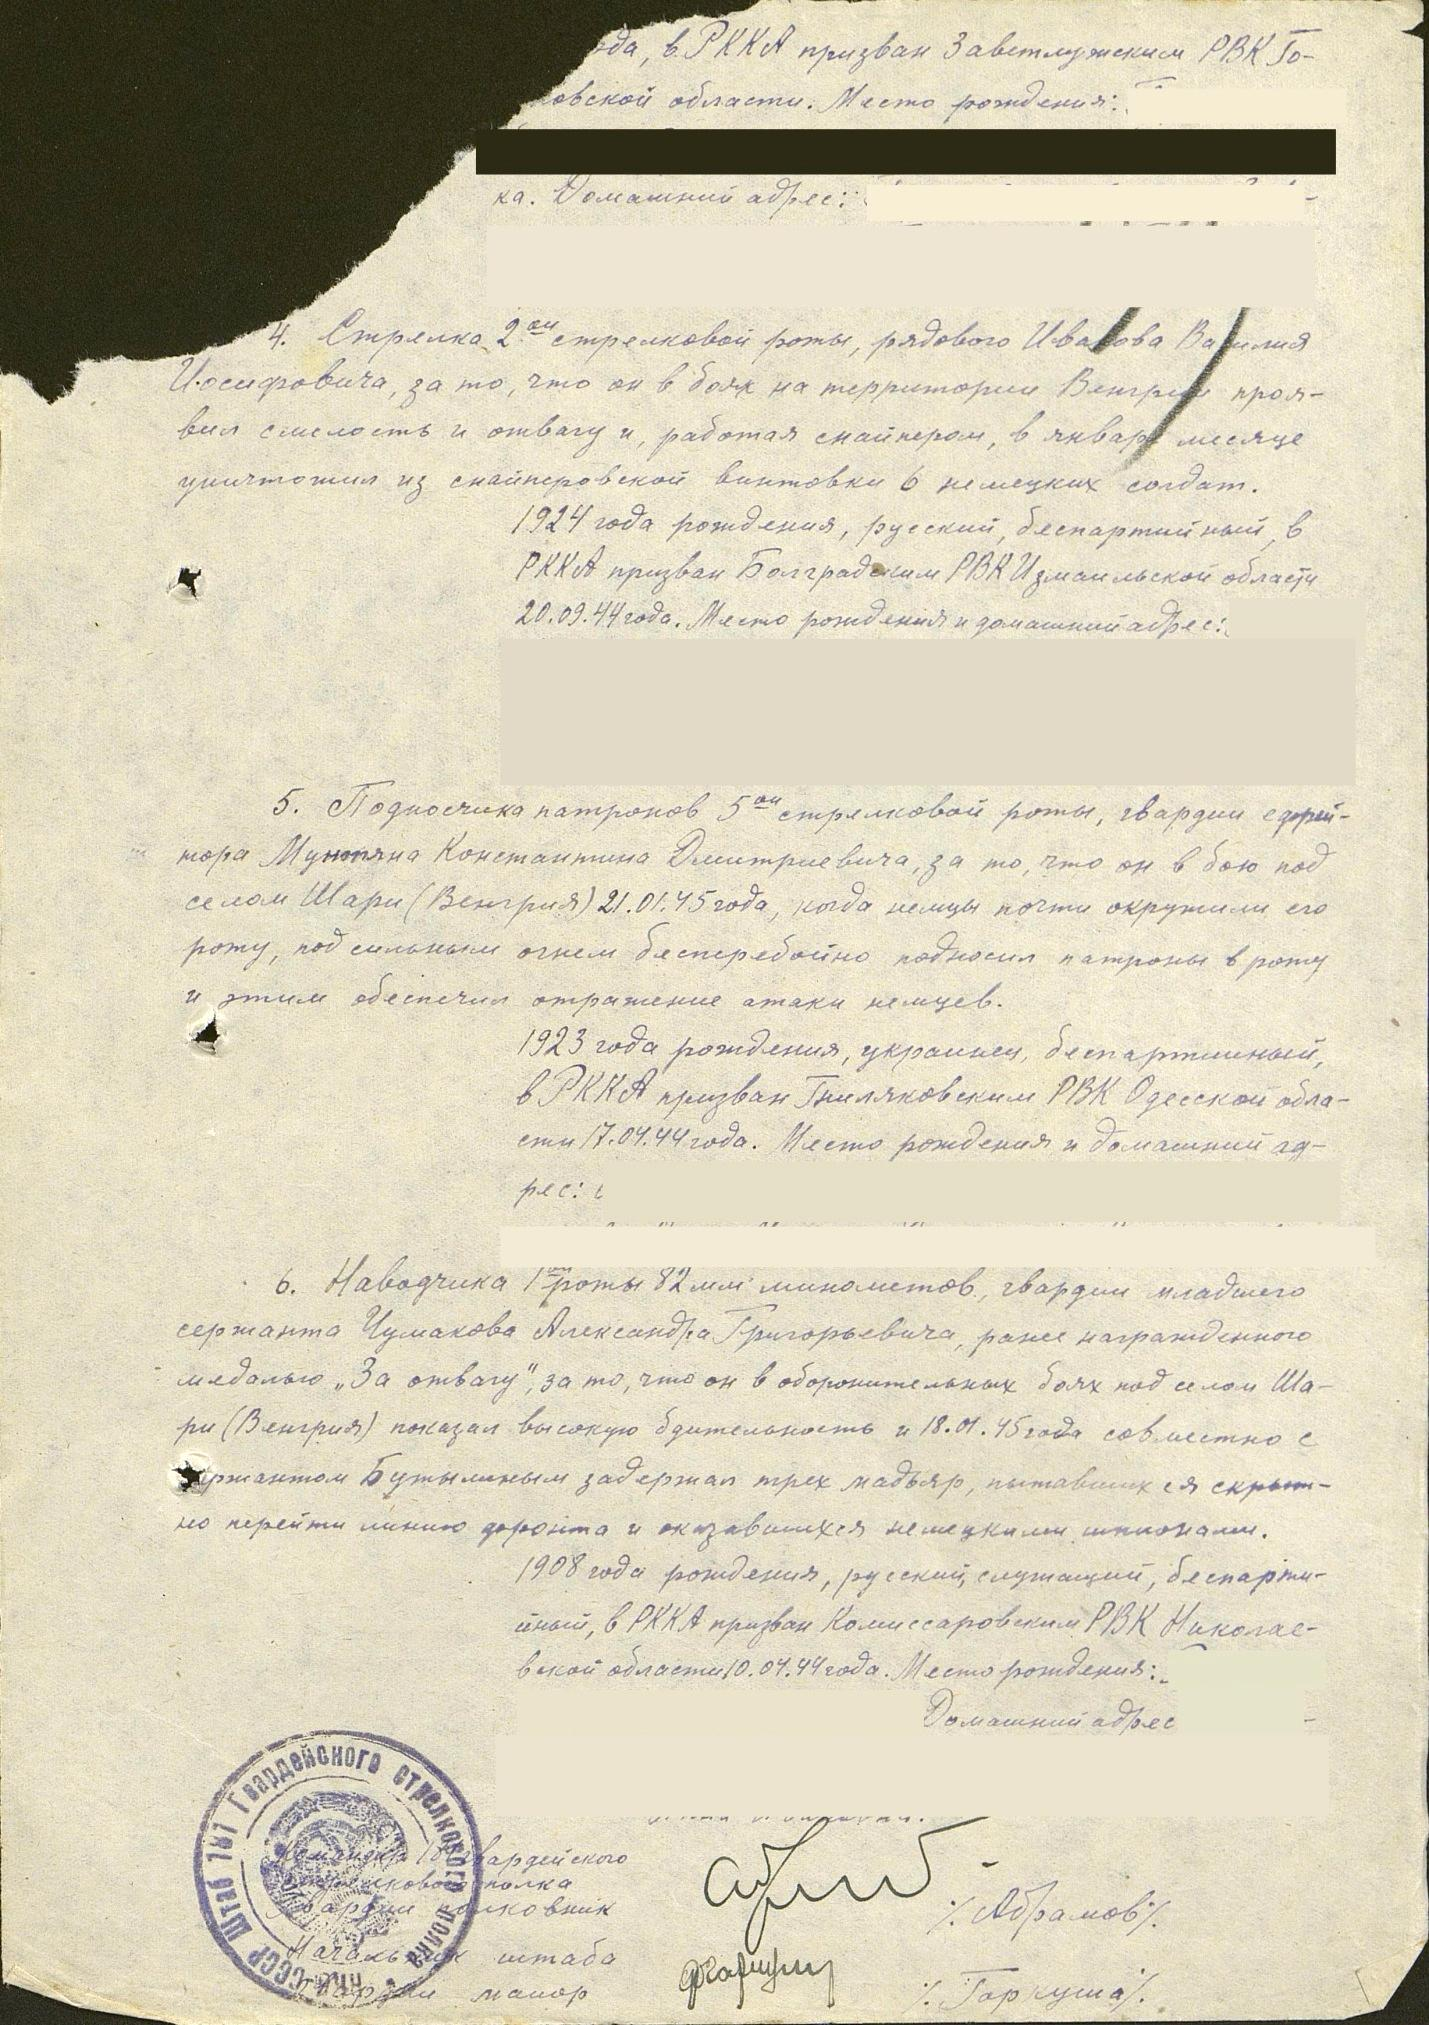 ода, в РККА призван Заветлужским РВК Го-
овской области. Место рождения:
ка. Домашний адрес:
4. Стрелка 2ой стрелковой роты, рядового Иванова Василия
Иосифовича, за то, что он в боях на территории Венгрии проя-
вил смелость и отвагу и, работая снайпером, в январе месяце
уничтожил из снайперовской винтовки 6 немецких солдат.
1924 года рождения, русский, беспартийный, в
РККА призван Болградским РВК Измаильской области
20.09.44 года. Место рождения и домашний адрес:
5. Подносчика патронов 5ой стрелковой роты, гвардии ефрей-
тора Мунтяна Константина Дмитриевича, за то, что он в бою под
селом Шари (Венгрия) 21.01.45 года, когда немцы почти окружили его
роту, под сильным огнем бесперебойно подносил патроны в роту
и этим обеспечил отражение атаки немцев.
1923 года рождения, украинец, беспартийный,
в РККА призван Гниляковским РВК Одесской обла-
сти 17.04.44 года. Место рождения и домашний ад-
рес:
6. Наводчика 1ой роты 82 мм минометов, гвардии младшего
сержанта Чумакова Александра Григорьевича, ранее награжденного
медалью „За отвагу", за то, что он в оборонительных боях под селом Ша-
ри (Венгрия) показал высокую бдительность и 18.01.45 года совместно с
сержантом Бутылиным задержал трех мадьяр, пытавшихся скрыт-
но перейти линию фронта и оказавшихся немецкими шпионами.
1908 года рождения, русский, служащий, беспарти-
йный, в РККА призван Комиссаровским РВК Николае-
вской области 10.04.44 года. Место рождения:
Домашний адрес
Штаб 181 Гвардейского стрелкового полка НКО СССР
Командир 181 гвардейского
стрелкового полка
Гвардии полковник
/. Абрамов/.
Начальник штаба
Гвардии майор
/. Гаркуша/.